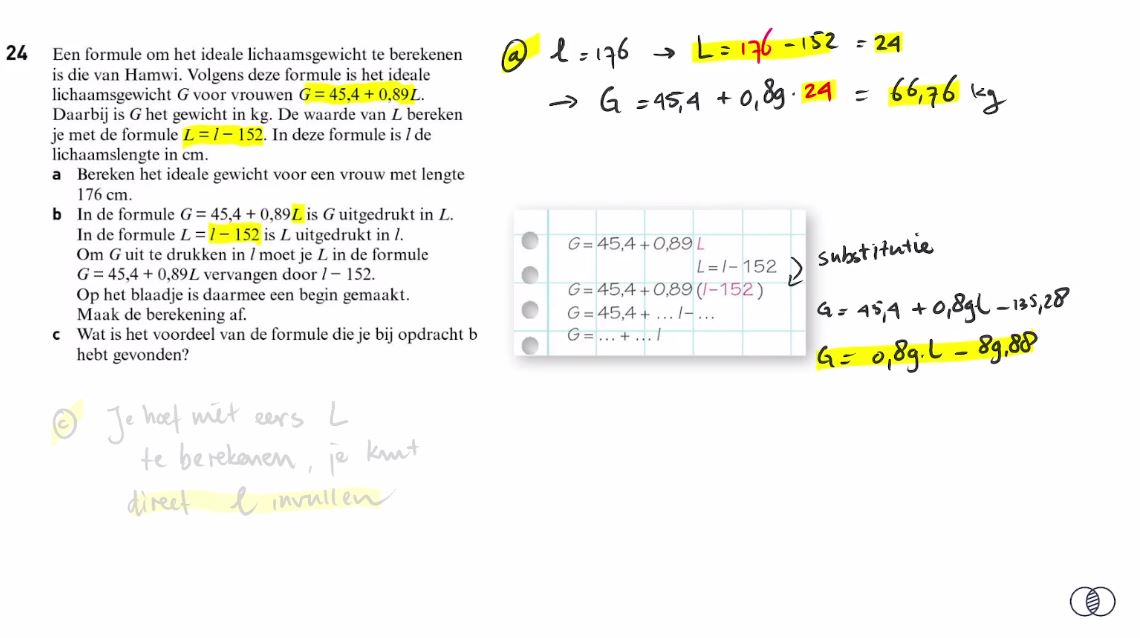 24 Een formule om het ideale lichaamsgewicht te berekenen
is die van Hamwi. Volgens deze formule is het ideale
lichaamsgewicht G voor vrouwen G = 45,4 + 0,89L.
Daarbij is G het gewicht in kg. De waarde van L bereken
je met de formule L = l − 152. In deze formule is l de
lichaamslengte in cm.
a Bereken het ideale gewicht voor een vrouw met lengte
176 cm.
b In de formule G = 45,4 + 0,89L is G uitgedrukt in L.
In de formule L = l − 152 is L uitgedrukt in l.
Om G uit te drukken in l moet je L in de formule
G = 45,4 + 0,89L vervangen door l − 152.
Op het blaadje is daarmee een begin gemaakt.
Maak de berekening af.
c Wat is het voordeel van de formule die je bij opdracht b
hebt gevonden?
a l = 176 → L = 176 − 152 = 24
→ G = 45,4 + 0,89 · 24 = 66,76 kg
G = 45,4 + 0,89 L
L = l − 152
G = 45,4 + 0,89 (l − 152)
G = 45,4 + ... l − ...
G = ... + ... l
substitutie
G = 45,4 + 0,89l − 135,28
G = 0,89·l − 89,88
c Je hoef niet eers L
te berekenen, je kunt
direct l invullen